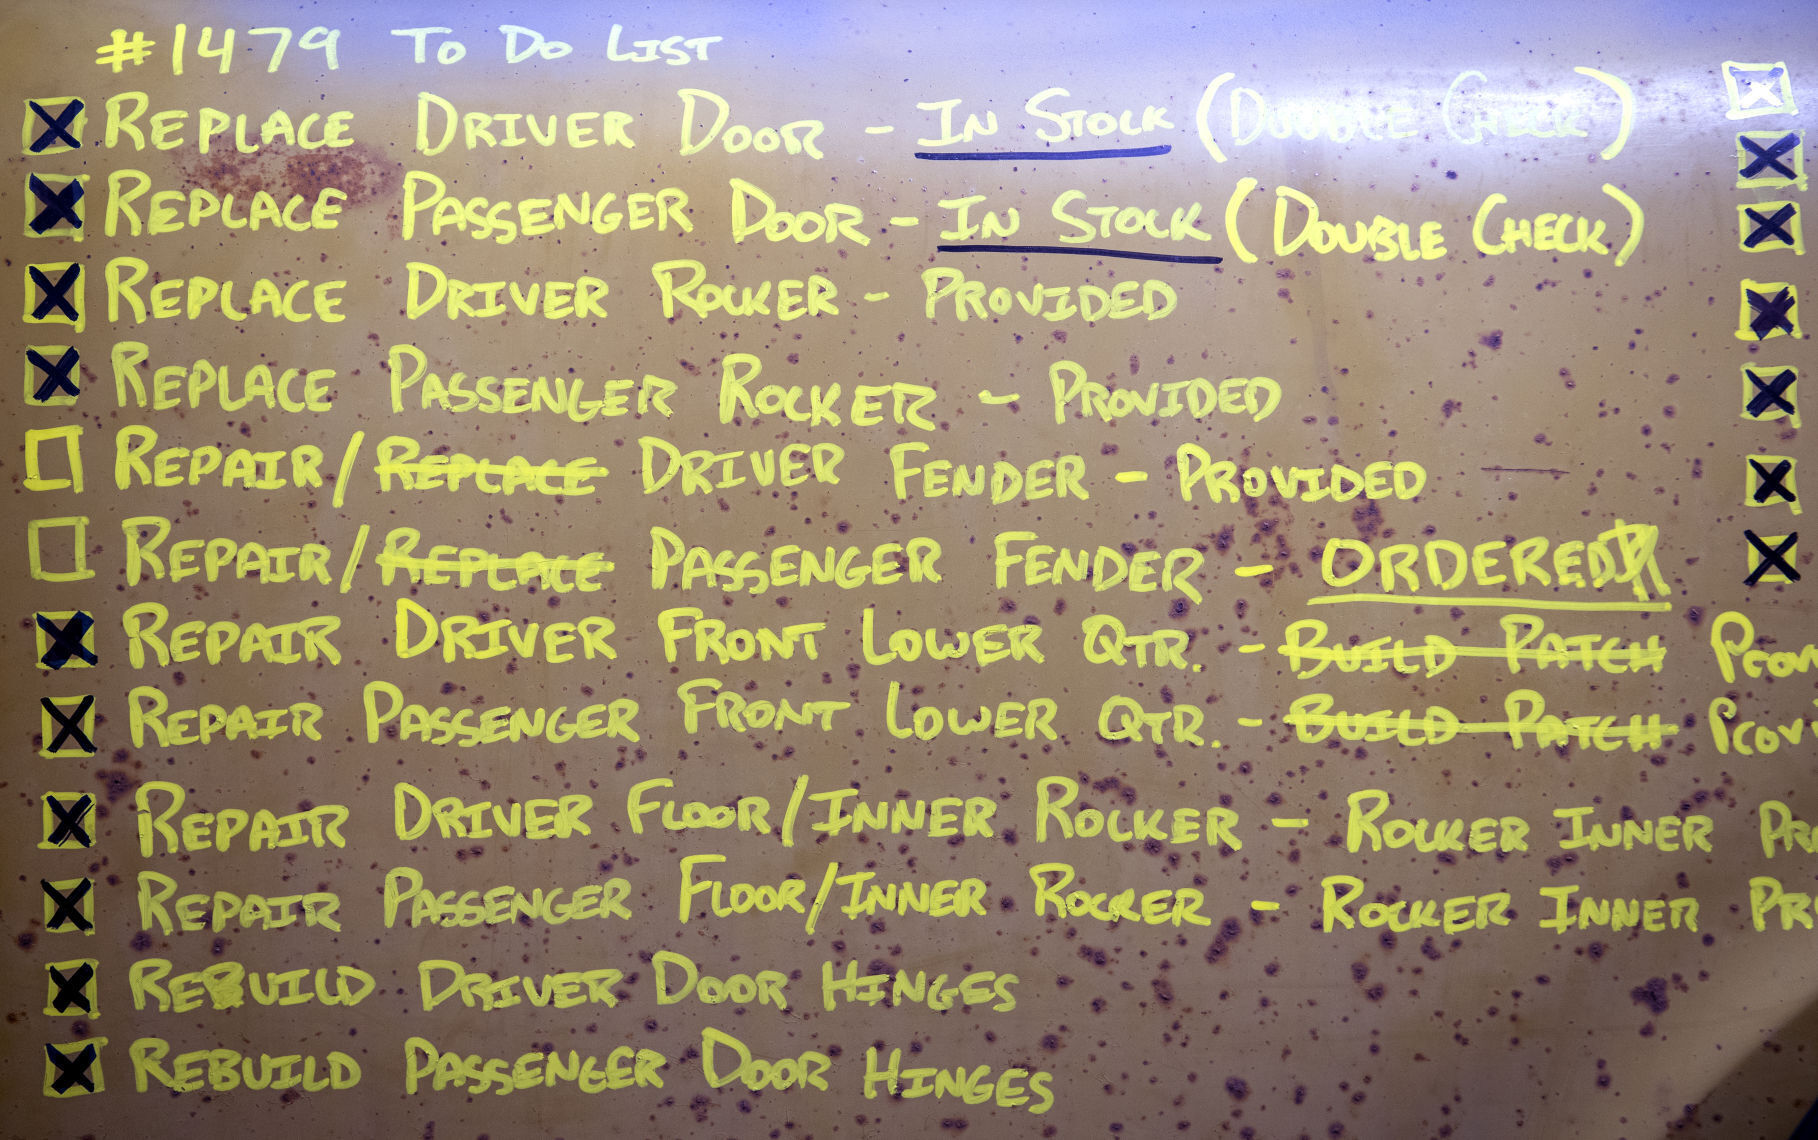 #1479 To Do List
Replace Driver Door - In Stock (Double Check)
Replace Passenger Door - In Stock (Double Check)
Replace Driver Rocker - Provided
Replace Passenger Rocker - Provided
Repair/Replace Driver Fender - Provided
Repair/Replace Passenger Fender - Ordered
Repair Driver Front Lower Qtr. - Build Patch
Repair Passenger Front Lower Qtr. - Build Patch
Repair Driver Floor/Inner Rocker - Rocker Inner
Repair Passenger Floor/Inner Rocker - Rocker Inner
Rebuild Driver Door Hinges
Rebuild Passenger Door Hinges